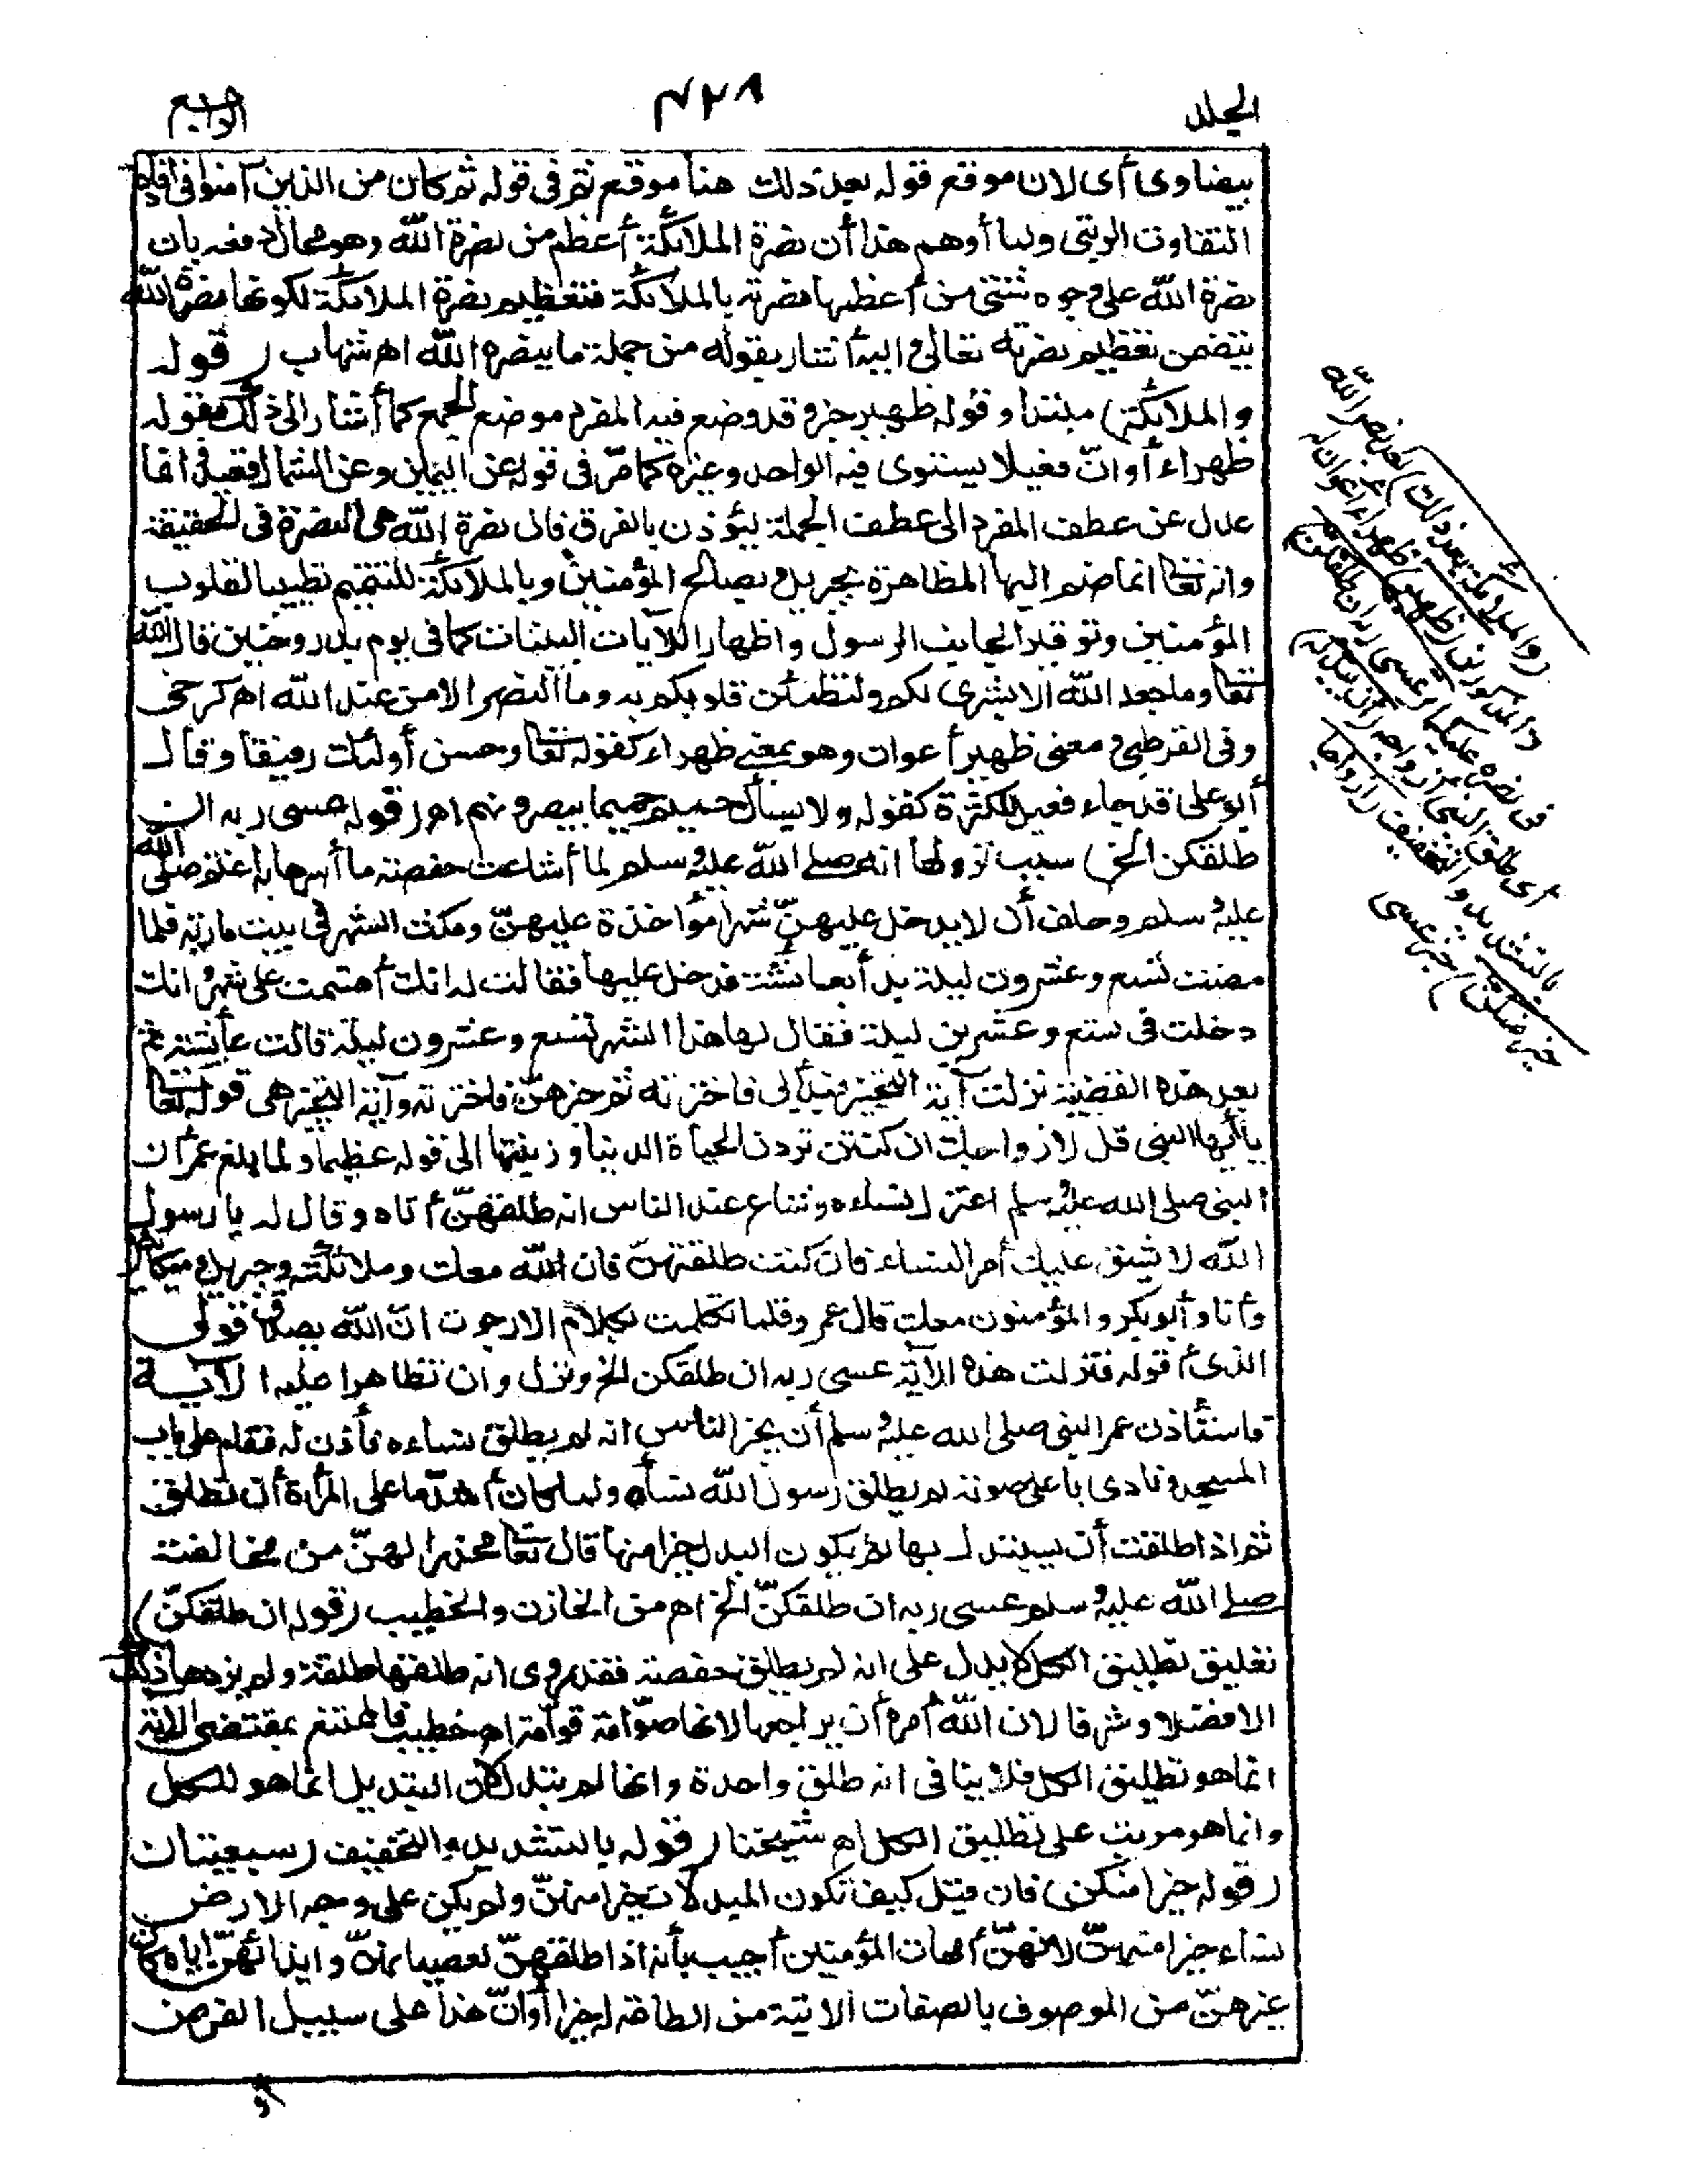 الجلد
٤٢٨
الرابع
بيضاوى أى لان موقع قوله بعد ذلك هنا موقع ثم فى قوله ثم كان من الذين آمنوا فى افادة
التفاوت الرتبى ولما أوهم هذا أن نصرة الملائكة أعظم من نصرة الله وهو محال دفعه بان
نصرة الله على وجوه شتى من أعظمها نصرته بالملائكة فتعظيم نصرة الملائكة لكونها نصرة الله
يتضمن تعظيم نصرته تعالى واليه أشار بقوله من جملة ما ينصره الله اھ شهاب (قوله
والملائكة) مبتدا وقوله ظهير خبره وقد وضع فيه المفرد موضع الجمع كما أشار الى ذلك بقوله
ظهراء أو ان فعيلا يستوى فيه الواحد وغيره كما مر فى قوله عن اليمين وعن الشمال قعيد وانما
عدل عن عطف المفرد الى عطف الجملة ليؤذن بالفرق فان نصرة الله هى النصرة فى الحقيقة
وانه تعالى انما ضم اليها المظاهرة بجبريل وبصالح المؤمنين وبالملائكة للتتميم تطييبا لقلوب
المؤمنين وتوقيرا لجانب الرسول واظهارا للآيات البينات كما فى يوم بدر وحنين قال الله
تعالى وما جعله الله الا بشرى لكم ولتطمئن قلوبكم به وما النصر الا من عند الله اھ كرخى
وفى القرطبى ومعنى ظهير أعوان وهو بمعنى ظهراء كقوله تعالى وحسن أولئك رفيقا وقال
أبو على قد جاء فعيل للكثرة كقوله ولا يسأل حميم حميما يبصرونهم اھ (قوله عسى ربه ان
طلقكن الخ) سبب نزولها انه صلى الله عليه وسلم لما أشاعت حفصة ما أسرها به اغتم صلى الله
عليه وسلم وحلف أن لا يدخل عليهن شهرا مؤاخذة عليهن ومكث الشهر فى بيت مارية فلما
مضت تسع وعشرون ليلة بدأ بعائشة فدخل عليها فقالت له انك أقسمت على شهر وانك
دخلت فى تسع وعشرين ليلة فقال لها هذا الشهر تسع وعشرون ليلة قالت عائشة ثم
بعد هذه القضية نزلت آية التخيير فبدأ بى فاخترته ثم خيرهن فاخترنه وآية التخيير هى قوله تعالى
يا أيها النبى قل لازواجك ان كنتن تردن الحياة الدنيا وزينتها الى قوله عظيما ولما بلغ عمر أن
النبى صلى الله عليه وسلم اعتزل نساءه وشاع عند الناس انه طلقهن أتاه وقال له يا رسول
الله لا يشق عليك أمر النساء فان كنت طلقتهن فان الله معك وملائكته وجبريل وميكائيل
وأنا وأبو بكر والمؤمنون معك قال عمر وقلما تكلمت بكلام الا رجوت ان الله يصدق قولى
الذى أقوله فنزلت هذه الآية عسى ربه ان طلقكن الخ ونزل وان تظاهرا عليه الآية
فاستأذن عمر النبى صلى الله عليه وسلم أن يخبر الناس انه لم يطلق نساءه فأذن له فقام على باب
المسجد ونادى باعلى صوته لم يطلق رسول الله نساءه ولما كان أشد ما على المرأة أن تطلق
ثم اذا طلقت أن يستبدل بها ثم يكون البدل خيرا منها قال تعالى محذرا لهن من مخالفته
صلى الله عليه وسلم عسى ربه ان طلقكن الخ اھ من الخازن والخطيب (قوله ان طلقكن)
تعليق تطليق الكل لا يدل على انه لم يطلق حفصة فقد روى انه طلقها طلقة ولم يزدها ذلك
الا فضلا وشرفا لان الله أمره أن يراجعها لانها صوّامة قوّامة اھ خطيب فالممتنع بمقتضى الآية
انما هو تطليق الكل فلا ينافى انه طلق واحدة وانها لم تبدل لان التبديل انما هو للكل
وانما هو مرتب على تطليق الكل اھ شيخنا (قوله بالتشديد والتخفيف) سبعيتان
(قوله خيرا منكن) فان قيل كيف تكون المبدلات خيرا منهن ولم يكن على وجه الارض
نساء خير منهن لانهن أمهات المؤمنين أجيب بأنه اذا طلقهن لعصيانهن وايذائهن اياه كان
غيرهن من الموصوف بالصفات الآتية من الطاعة له خيرا أو ان هذا على سبيل الفرض
(والملائكة بعد ذلك) بعد نصر الله
والمذكورين (ظهير) ظهراء أعوان له
فى نصره عليكما (عسى ربه ان طلقكن)
أى طلق النبى أزواجه (أن يبدله)
بالتشديد والتخفيف (أزواجا
خيرا منكن) خبر عسى